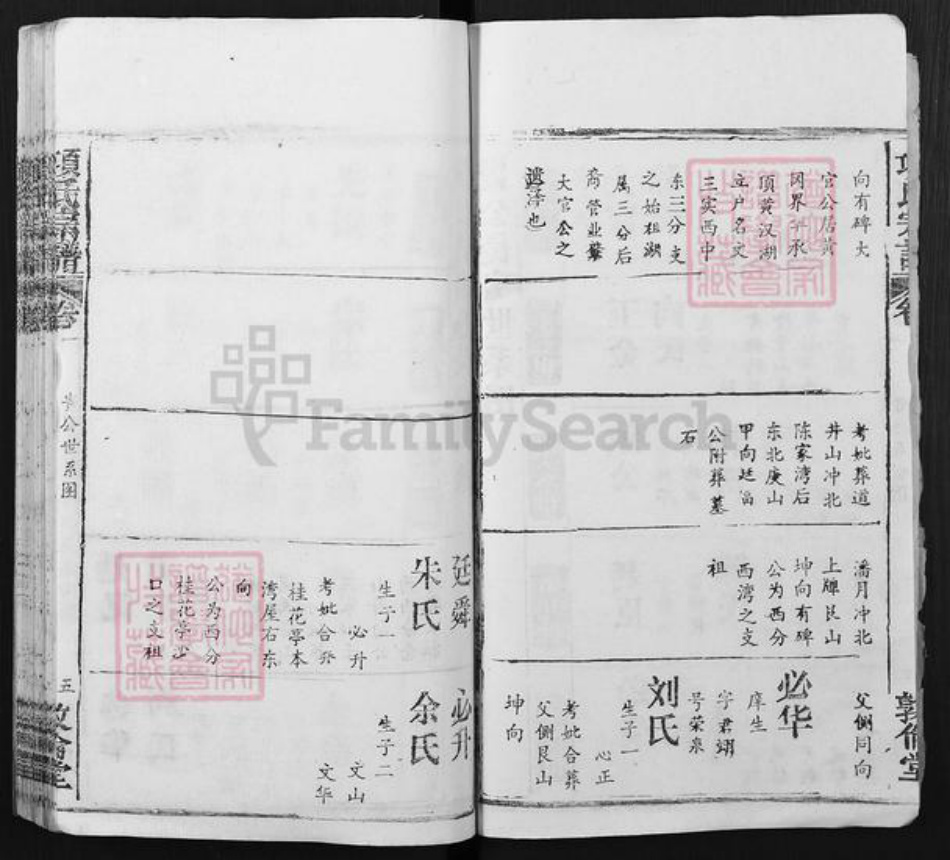 向有碑大
官公居黄
冈界平承
顶黄汉湖
立户名文
三实西中
东三分支
之始祖湖
属三分后
裔管业肇
大官公之
遗泽也
考妣葬道
井山冲北
陈家湾后
东北庚山
甲向廷
公附葬墓
石
潘月冲北
上牌艮山
坤向有碑
公为西分
西湾之支
祖
父侧同向
必华
庠生
字君翊
号荣泉
刘氏
生子一
心正
考妣合葬
父侧艮山
坤向
敦伦堂
廷舜
朱氏
生子一
必升
考妣合葬
桂花亭本
湾屋右东
向
公为西分
桂花亭少
口之支祖
必升
余氏
生子二
文山
文华
项氏宗谱
卷一
公世系图
五
敦伦堂
FamilySearch